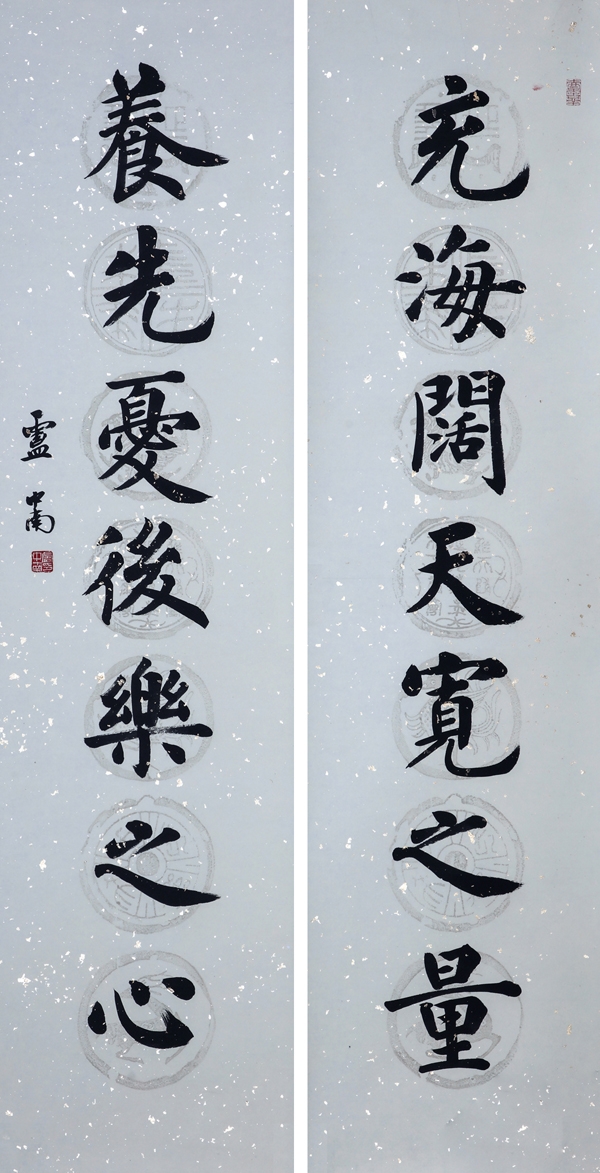 充海闊天寬之量
養先憂後樂之心
盧中南